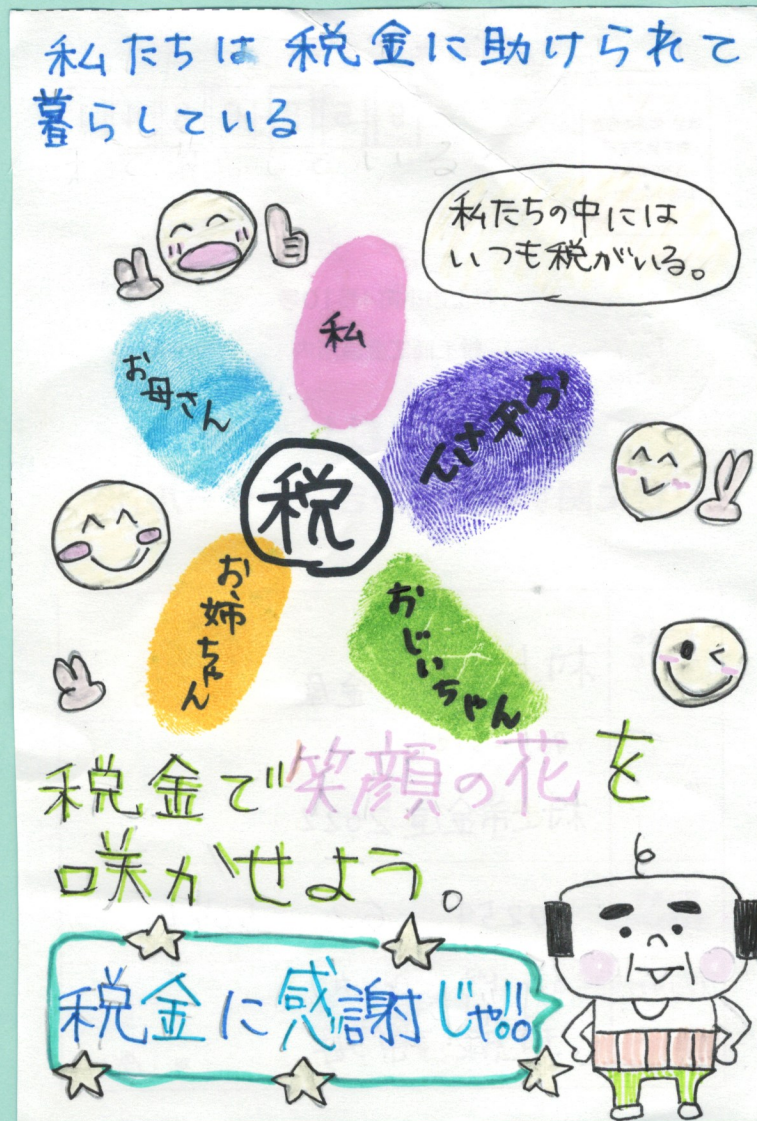 私たちは税金に助けられて
暮らしている
私たちの中には
いつも税がいる。
私
お母さん
税
お姉ちゃん
おじいちゃん
税金で笑顔の花を
咲かせよう。
税金に感謝じゃ!!